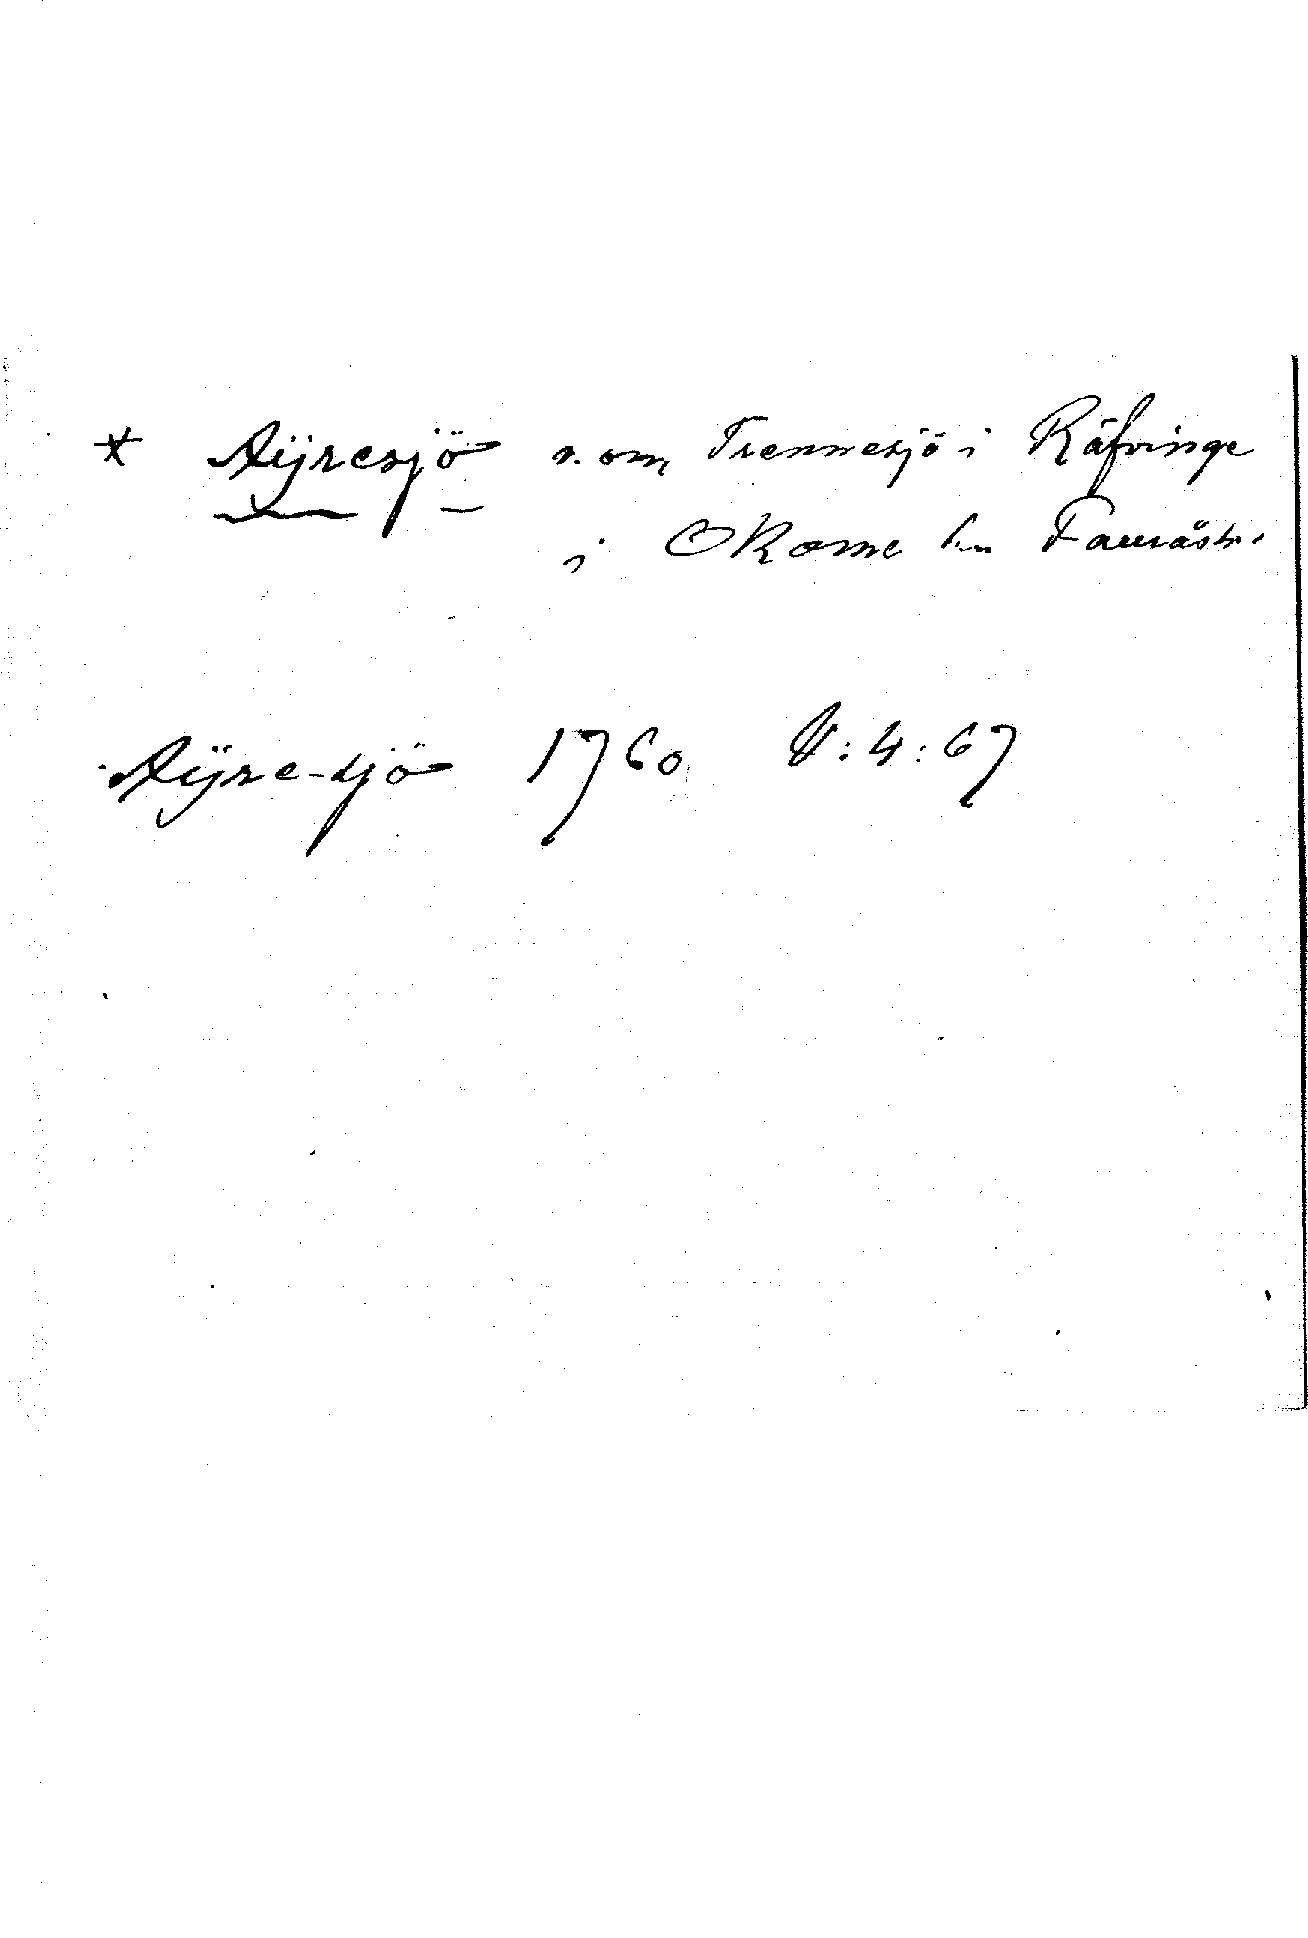 * Aÿresjö s. om Trennesjö i Räfvinge
i Okome sn Fauråsh.
Aÿre-sjö 1760 V:4:67